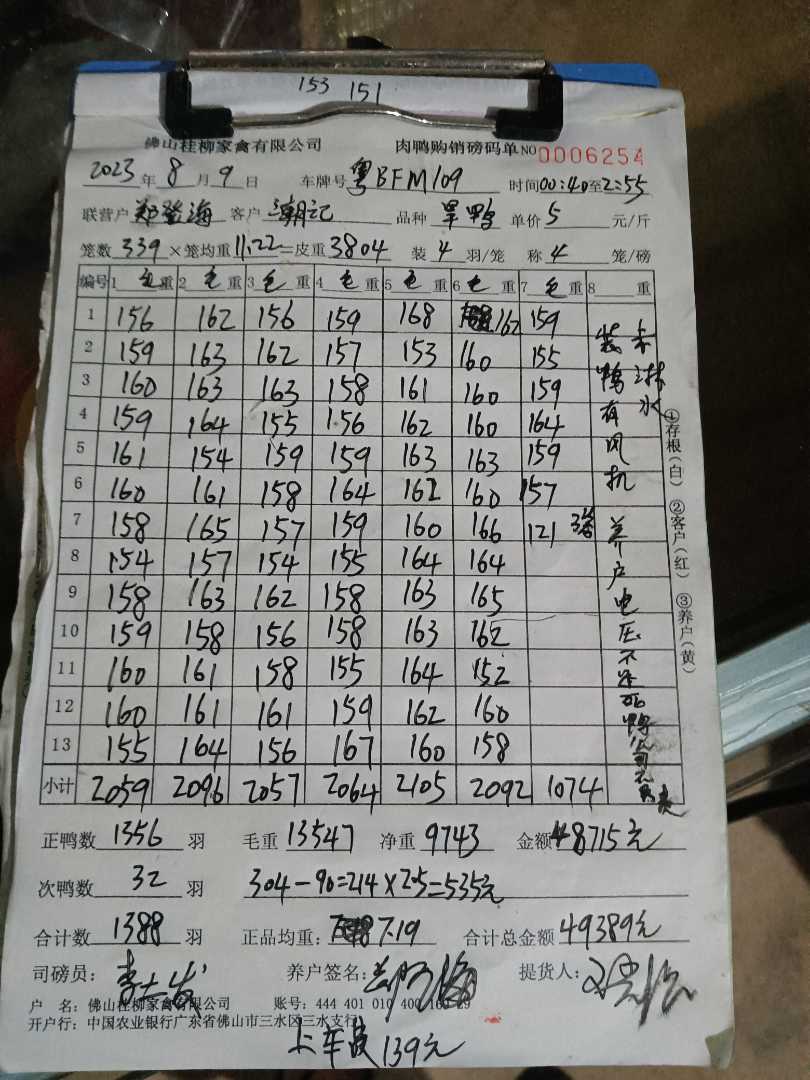 153 151
佛山桂柳家禽有限公司 肉鸭购销磅码单 NO 0006254
2023年8月9日 车牌号粤BFM109 时间00:40至2:55
联营户郑登海 客户潮记 品种旱鸭 单价5元/斤
笼数339×笼均重11.22=皮重3804 装4羽/笼 称4笼/磅
编号 1毛重 2毛重 3毛重 4毛重 5毛重 6毛重 7毛重 8重
1 156 162 156 159 168 162 159
2 159 163 162 157 153 160 155
3 160 163 163 158 161 160 159
4 159 164 155 156 162 160 164
5 161 154 159 159 163 163 159
6 160 161 158 164 162 160 157
7 158 165 157 159 160 166 121 3笼
8 154 157 154 155 164 164
9 158 163 162 158 163 165
10 159 158 156 158 163 162
11 160 161 158 155 164 152
12 160 161 161 159 162 160
13 155 164 156 167 160 158
小计 2059 2096 2057 2064 2105 2092 1074
装鸭有风机
养户电压不
未淋水
①存根(白) ②客户(红) ③养户(黄)
正鸭数1356羽 毛重13547 净重9743 金额48715元
次鸭数32羽 304-90=214×2.5=535元
合计数1388羽 正品均重:7.19 合计总金额49389元
司磅员: 养户签名: 提货人:
户 名:佛山桂柳家禽有限公司 账号:444 401 010 400 29
开户行:中国农业银行广东省佛山市三水区三水支行
上车费139元